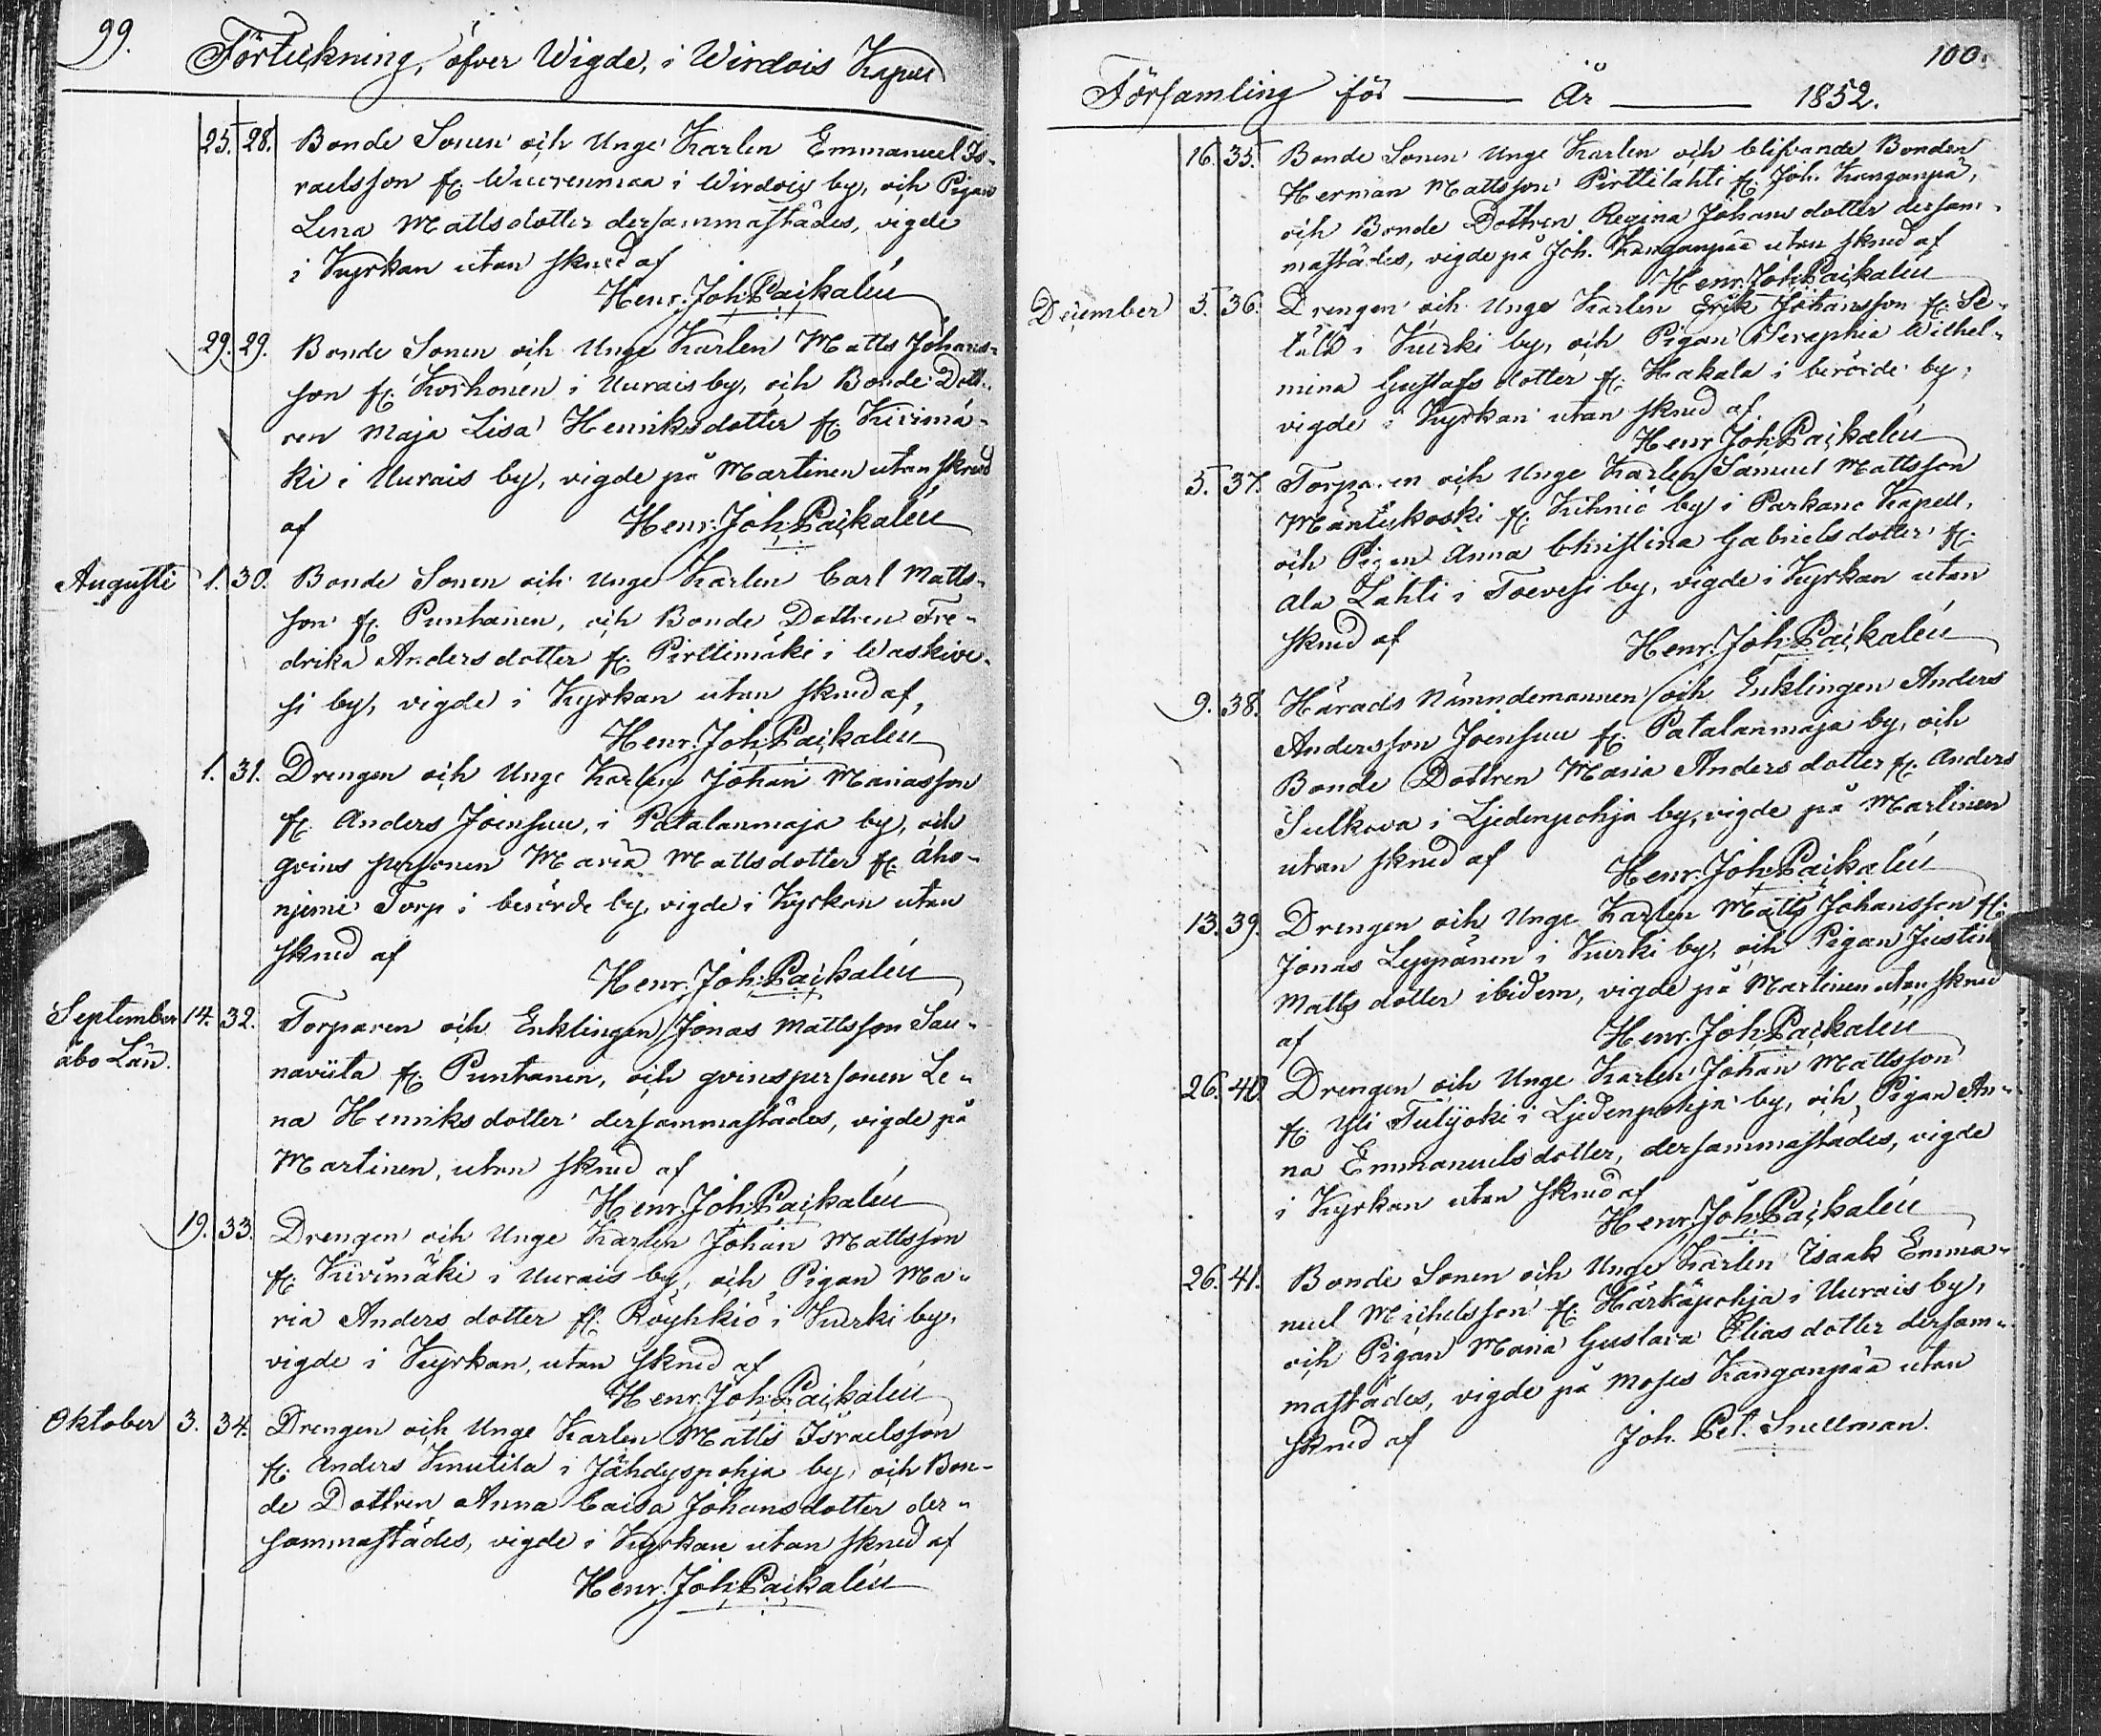 99.
Förteckning, öfver Wigde, i Wirdois Kapell
25. 28. Bonde Sonen och Unge Karlen Emmanuel Is-
raelsson fr. Wuorenmaa i Wirdois by, och Pigan
Lena Mattsdotter dersammastädes, vigde
i Kyrkan utan skrud af
Henr. Joh. Paickalén
29. 29. Bonde Sonen och Unge Karlen Matts Johans-
son fr. Korhonen i Uurais by, och Bonde Dott-
ren Maja Lisa Henriksdotter fr. Kivimä-
ki i Uurais by, vigde på Martinen utan skrud
af Henr. Joh. Paickalén
Augusti 1. 30. Bonde Sonen och Unge Karlen Carl Matts-
son fr. Puntanen, och Bonde Dottren Fre-
drika Andersdotter fr. Pirttimäki i Waskive-
si by, vigde i Kyrkan utan skrud af,
Henr. Joh. Paickalén
1. 31. Drengen och Unge Karlen Johan Mariasson
fr. Anders Joensuu, i Patalanmaja by, och
qvins personen Maria Mattsdotter fr. Aho-
njemi Torp i berörde by, vigde i Kyrkan utan
skrud af
Henr. Joh. Paickalén
September 14. 32. Torparen och Enklingen Jonas Mattsson Sau-
Åbo Län. naviita fr. Puntanen, och qvinspersonen Le-
na Henriksdotter dersammastädes, vigde på
Martinen, utan skrud af
Henr. Joh. Paickalén
19. 33. Drengen och Unge Karlen Johan Mattsson
fr. Kivimäki i Uurais by, och Pigan Ma-
ria Anders dotter fr. Röyhkiö i Kurki by,
vigde i Kyrkan, utan skrud af
Henr. Joh. Paickalén
Oktober 3. 34. Drengen och Unge Karlen Matts Israelsson
fr. Anders Knutila i Jähdyspohja by, och Bon-
de Dottren Anna Caisa Johansdotter der-
sammastädes, vigde i Kyrkan utan skrud af
Henr. Joh. Paickalén
100.
Församling för År 1852.
16. 35. Bonde Sonen Unge Karlen och blifvande Bonden
Herman Mattsson Pirttilahti fr. Joh. Kanganpä,
och Bonde Dottren Regina Johans dotter dersam-
mastädes, vigde på Joh. Kanganpää utan skrud af
Henr. Joh. Paickalén
December 5. 36. Drengen och Unge Karlen Erik Johansson fr. Se-
tälä i Kurki by, och Pigan Seraphia Wilhel-
mina Gustafs dotter fr. Hakala i berörde by,
vigde i Kyrkan utan skrud af.
Henr. Joh. Paickalén
5. 37. Torparen och Unge Karlen Samuel Mattsson
Mäntykoski fr. Kihniö by i Parkano Kapell,
och Pigan Anna Christina Gabrielsdotter fr.
Ala Lahti i Toevesi by, vigde i Kyrkan utan
skrud af Henr. Joh. Paickalén
9. 38. Härads Nämndemannen och Enklingen Anders
Andersson Joensuu fr. Patalanmaja by, och
Bonde Dottren Maria Anders dotter fr. Anders
Sulkava i Ljedenpohja by, vigde på Martinen
utan skrud af Henr. Joh. Paickalén
13. 39. Drengen och Unge Karlen Matts Johansson fr.
Jonas Leppänen i Kurki by, och Pigan Justin
Matts dotter ibidem, vigde på Martinen utan skrud
af Henr. Joh. Paickalén
26. 40. Drengen och Unge Karlen Johan Mattsson
fr. Yli Tulijoki i Ljedenpohja by, och Pigan An-
na Emmanuelsdotter, dersammastädes, vigde
i Kyrkan utan skrud af
Henr. Joh. Paickalén
26. 41. Bonde Sonen och Unge Karlen Isaak Emma-
nuel Michelsson fr. Härkäpohja i Uurais by,
och Pigan Maria Gustava Elias dotter dersam-
mastädes, vigde på Moses Kanganpää utan
skrud af Joh. Pet. Snellman.